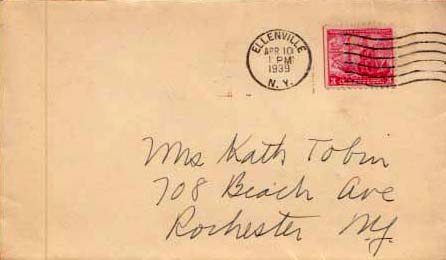 ELLENVILLE
APR 10
1 PM
1939
N.Y.
3
Mrs Kath Tobin
708 Beach Ave
Rochester NY.